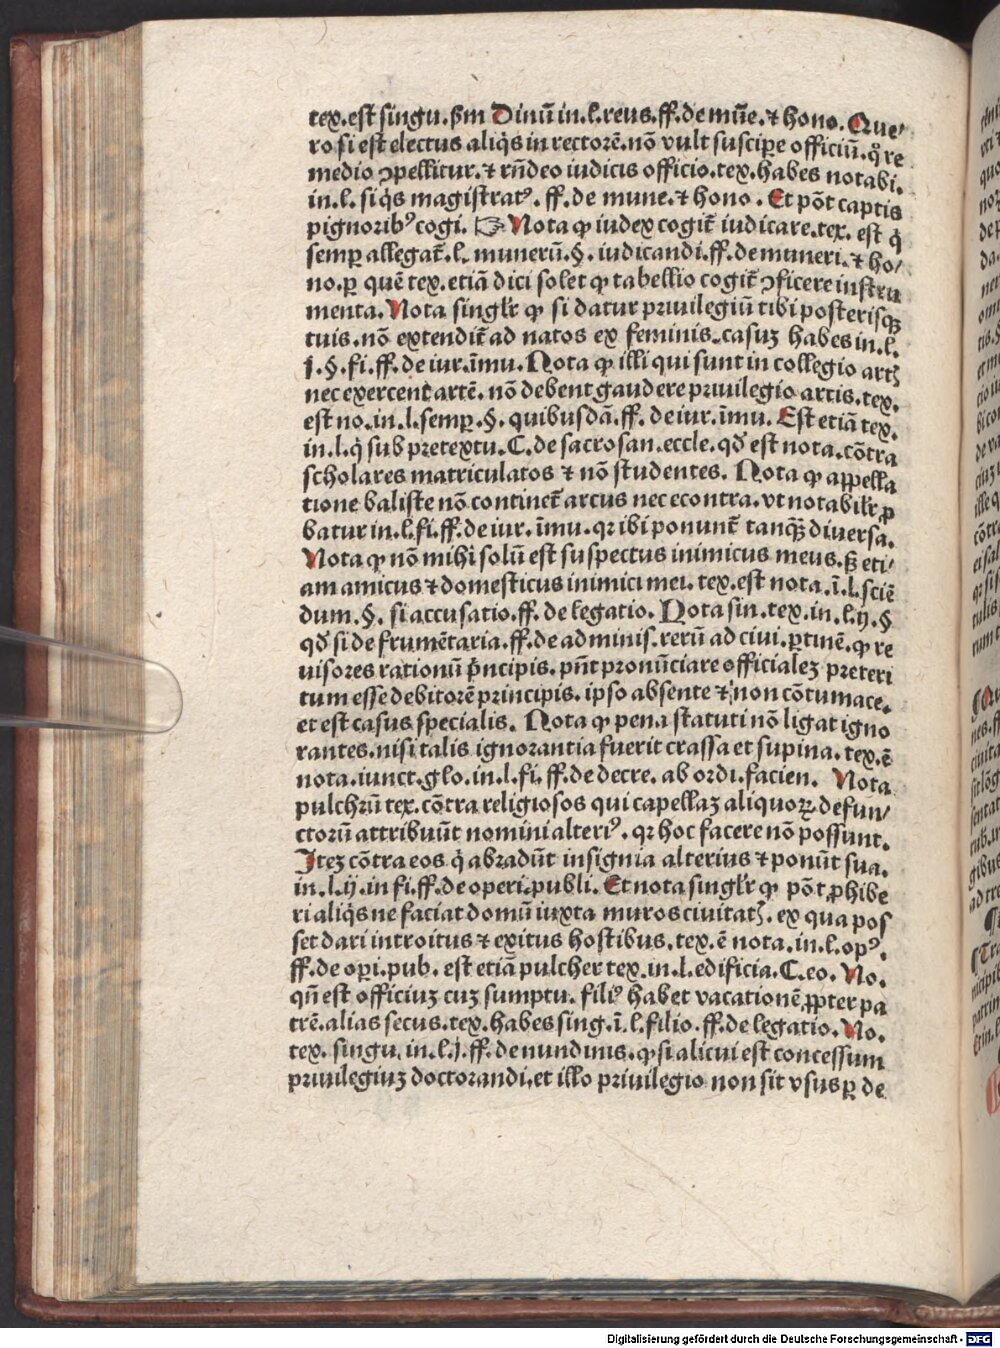 tex. est singu. ẜm Dinū in. l. reus. ff. de mūe. ⁊ hono. Que⸗
ro si est electus aliq̇s in rectorē. nō vult suscipe officiū. q̊ re
medio ꝯpellitur. ⁊ rn̄deo iudicis officio. tex. habes notabi.
in. l. si q̇s magistratꝰ. ff. de mune. ⁊ hono. Et pōt captis
pignoribꝰ cogi. ☞ Nota ꝙ iudex cogit̄ iudicare. tex. est q̇
semꝑ allegat̄. l. munerū. §. iudicandi. ff. de muneri. ⁊ ho⸗
no. ꝑ quē tex. etiā dici solet ꝙ tabellio cogit̄ ꝯficere instru
menta. Nota singl'r ꝙ si datur priuilegiū tibi posterisqꝫ
tuis. nō extendit̄ ad natos ex feminis. casuꝫ habes in. l.
j. §. fi. ff. de iur. īmu. Nota ꝙ illi qui sunt in collegio artꝭ
nec exercent artē. nō debent gaudere priuilegio artis. tex.
est no. in. l. semꝑ. §. quibusdā. ff. de iur. īmu. Est etiā tex.
in. l. q̇ sub pretextu. C. de sacrosan. eccle. qd' est nota. cōtra
scholares matriculatos ⁊ nō studentes. Nota ꝙ appella
tione baliste nō continet̄ arcus nec econtra. vt notabil'r ꝓ
batur in. l. fi. ff. de iur. īmu. qꝛ ibi ponunt̄ tanqꝫ diuersa.
Nota ꝙ nō mihi solū est suspectus inimicus meus. sꝫ eti⸗
am amicus ⁊ domesticus inimici mei. tex. est nota. ī. l. sciē
dum. §. si accusatio. ff. de legatio. Nota sin. tex. in. l. ij. §
qd' si de frumētaria. ff. de adminis. rerū ad ciui. ꝑtinē. ꝙ re
uisores rationū p̄ncipis. pn̄t pronūciare officialeꝫ preteri
tum esse debitorē principis. ipso absente ⁊ non cōtumace.
et est casus specialis. Nota ꝙ pena statuti nō ligat igno
rantes. nisi talis ignorantia fuerit crassa et supina. tex. ē
nota. iunct. glo. in. l. fi. ff. de decre. ab ordi. facien. Nota
pulchrū tex. cōtra religiosos qui capellaꝫ aliquoꝝ defun⸗
ctorū attribuūt nomini alteriꝰ. qꝛ hoc facere nō possunt.
Iteꝫ cōtra eos q̇ abradūt insignia alterius ⁊ ponūt sua.
in. l. ij. in fi. ff. de operi. publi. Et nota singl'r ꝙ pōt ꝓhibe
ri aliq̇s ne faciat domū iuxta muros ciuitatꝭ. ex qua pos
set dari introitus ⁊ exitus hostibus. tex. ē nota. in. l. opꝰ.
ff. de opi. pub. est etiā pulcher tex. in. l. edificia. C. eo. No.
qn̄ est officiuꝫ cuꝫ sumptu. filiꝰ habet vacationē ꝓpter pa
trē. alias secus. tex. habes sing. ī. l. filio. ff. de legatio. No.
tex. singu. in. l. j. ff. de nundinis. ꝙ si alicui est concessum
priuilegiuꝫ doctorandi. et illo priuilegio non sit vsus ꝑ de
Digitalisierung gefördert durch die Deutsche Forschungsgemeinschaft - DFG